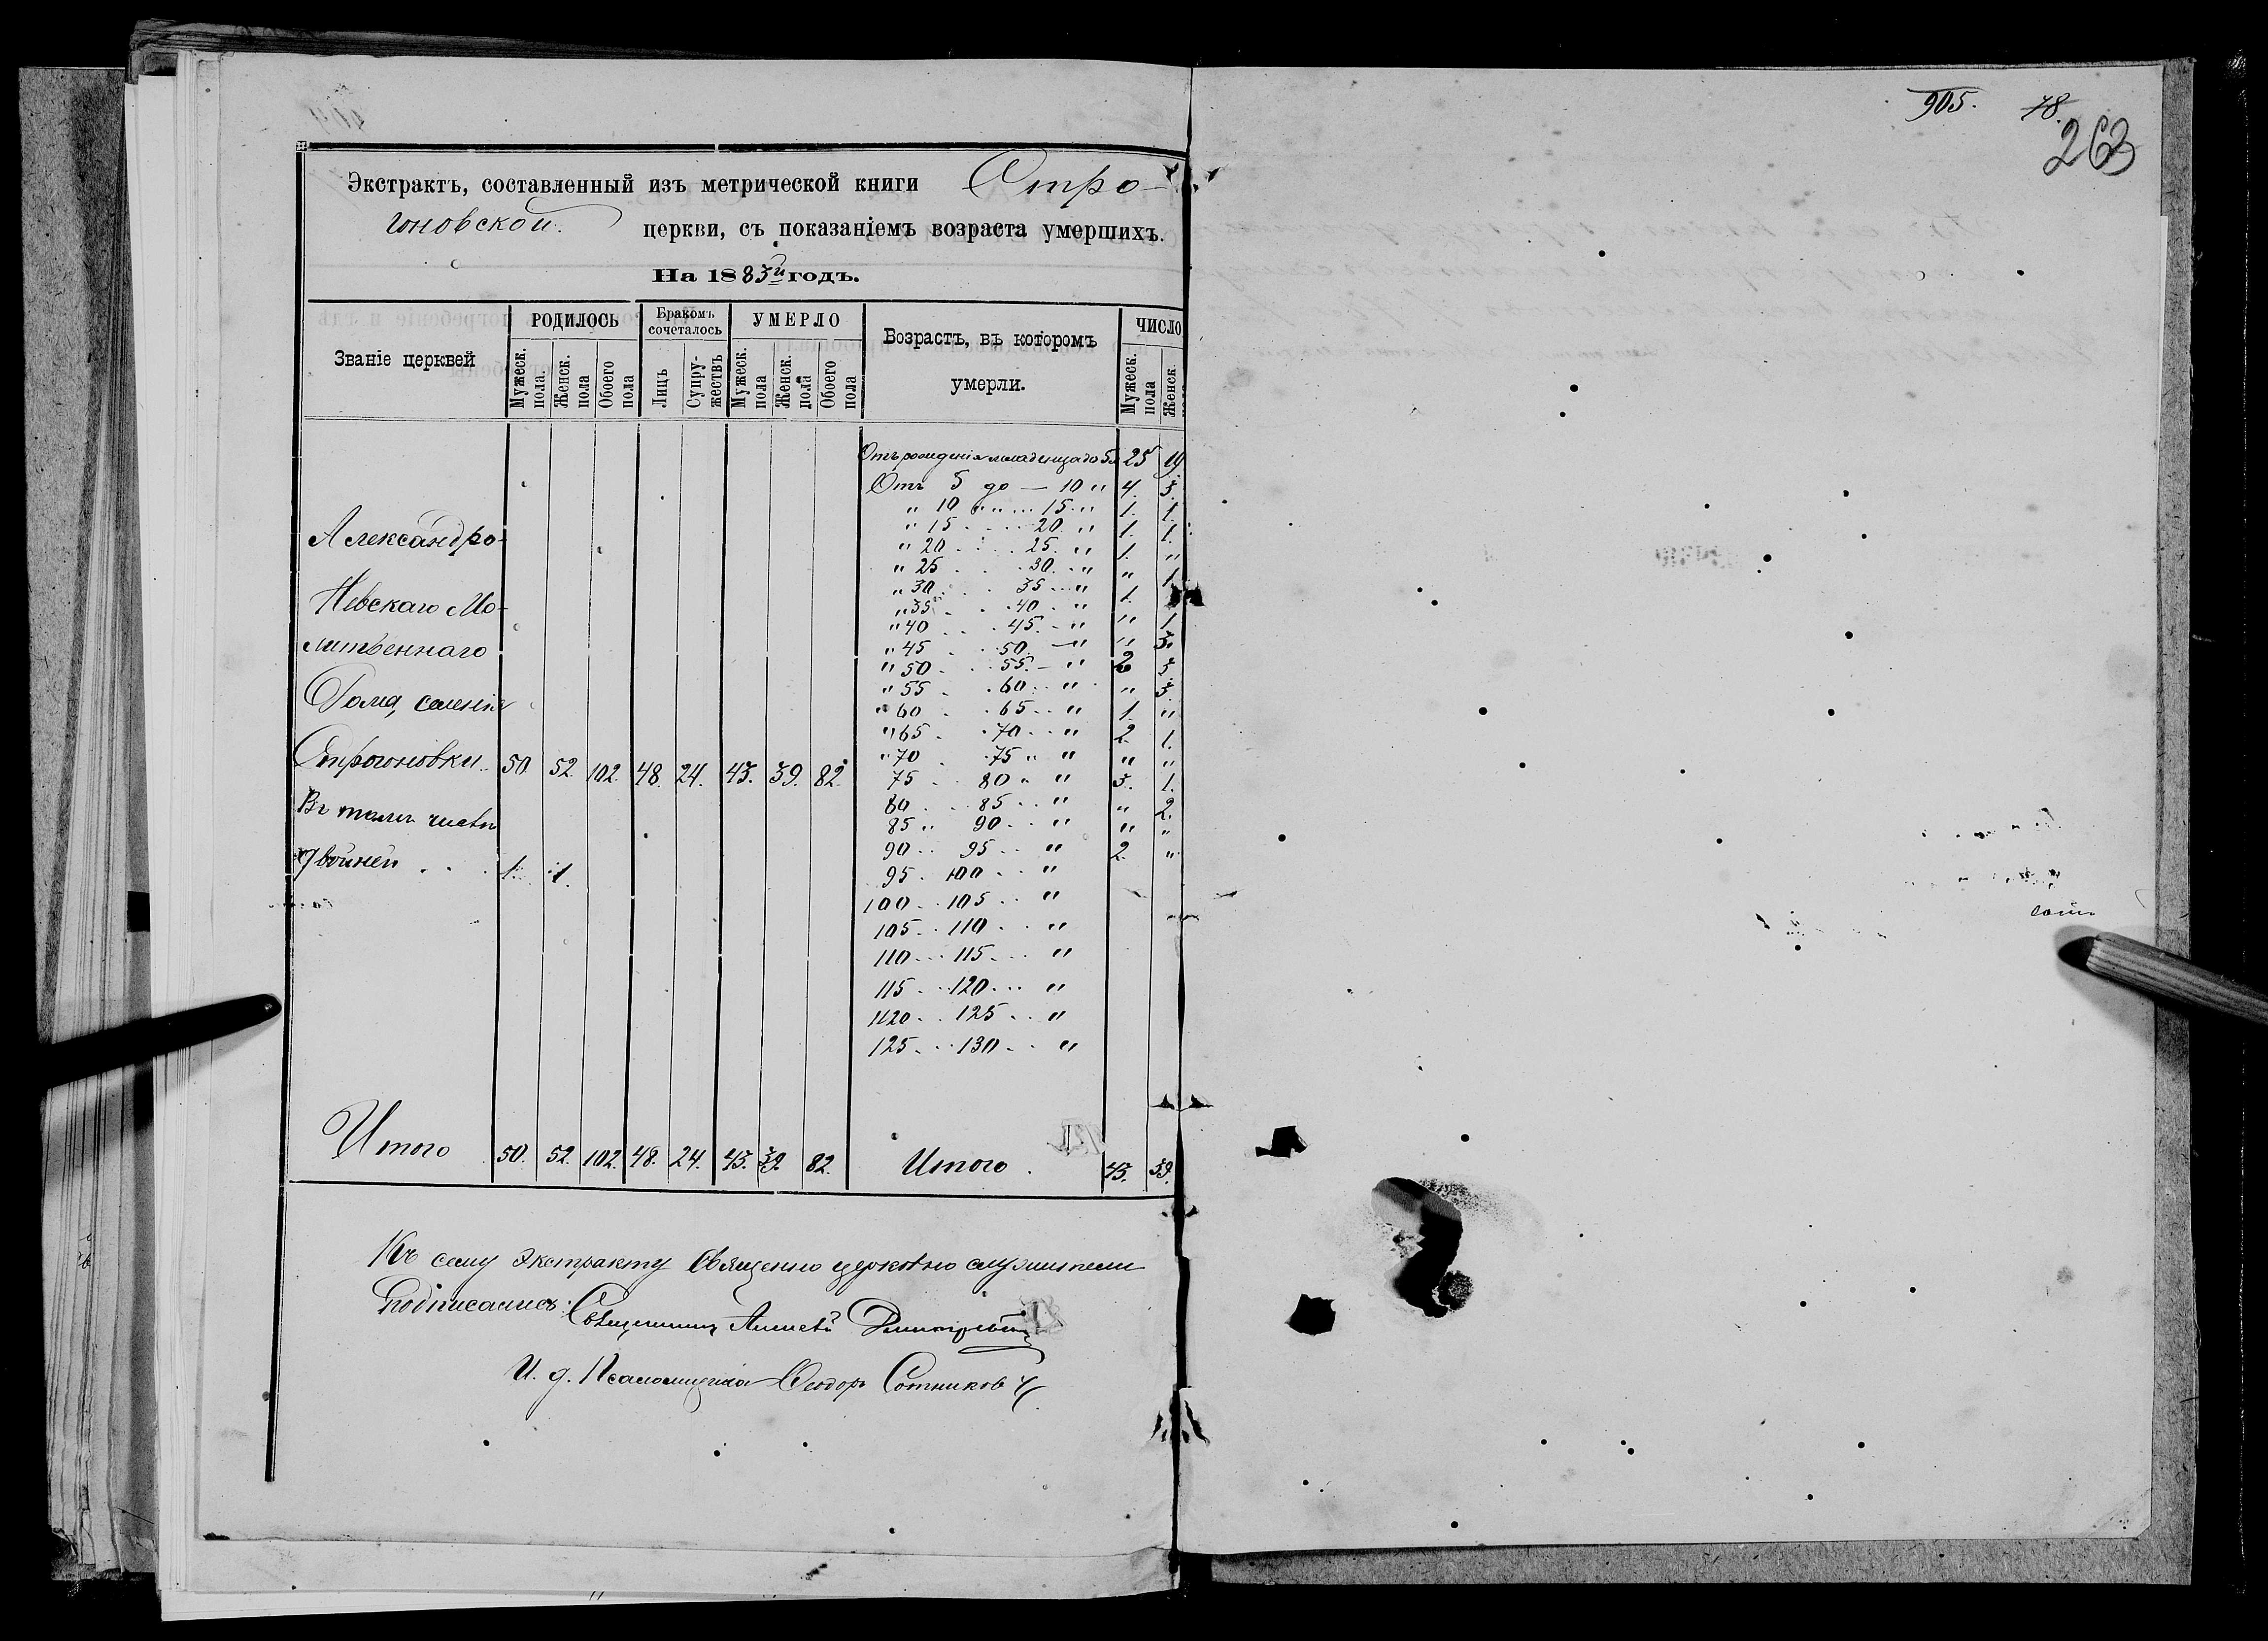 Экстрактъ, составленный изъ метрической книги Строгоновской церкви, съ показаніемъ возраста умершихъ.
На 1883й годъ.
Званіе церквей
РОДИЛОСЬ
Мужеск. пола.
Женск. пола
Обоего пола
Бракомъ сочеталось
Лицъ
Супружествъ
УМЕРЛО
Мужеск. пола
Женск. пола
Обоего пола
Возрастъ, въ которомъ умерли.
ЧИСЛО
Мужеск. пола
Женск.
Отъ рожденія младенца до 5 25 19.
Отъ 5 до — 10 " 4. 3.
" 10 " " 15 " 1. 1.
" 15 . . . 20 " 1. 1.
" 20 . . . 25. " 1. "
" 25 . . . 30. " " 1.
" 30 . . 35 " 1.
" 35 . . 40 . " " 1
" 40 . . . 45. - " " 3.
" 45 . . 50. — " 2 3.
" 50 . . 55. - "
" 55 . . 60 . . " " 3.
" 60 . . 65 . . " 1. "
" 65 . . 70 . . " 2. 1.
" 70 . . 75 " " " "
75 . . 80 " " 3. 1.
80 . . . 85 . . " " 2.
85 " 90 . . " " "
90 . . 95 . . " 2. "
95 . 100 . . "
100 . . 105 . . "
105 . . 110 . . "
110 . . . 115 . . . "
115 . . . 120 . . . "
120 . . 125 . . "
125 . . . 130 . . "
Александро-
Невскаго Мо-
литвеннаго
Дома, селенія
Строгоновки. 50. 52. 102. 48. 24. 43. 39. 82.
Въ томъ числѣ
двойней . . . 1. 1.
Итого 50. 52. 102. 48. 24. 43. 39. 82. Итого . 43. 39.
Къ сему экстракту Священно церковно служители
подписались: Священникъ Димитрьевъ
И. д. Псаломщика Ѳеодоръ Сотниковъ
905. 78.
263